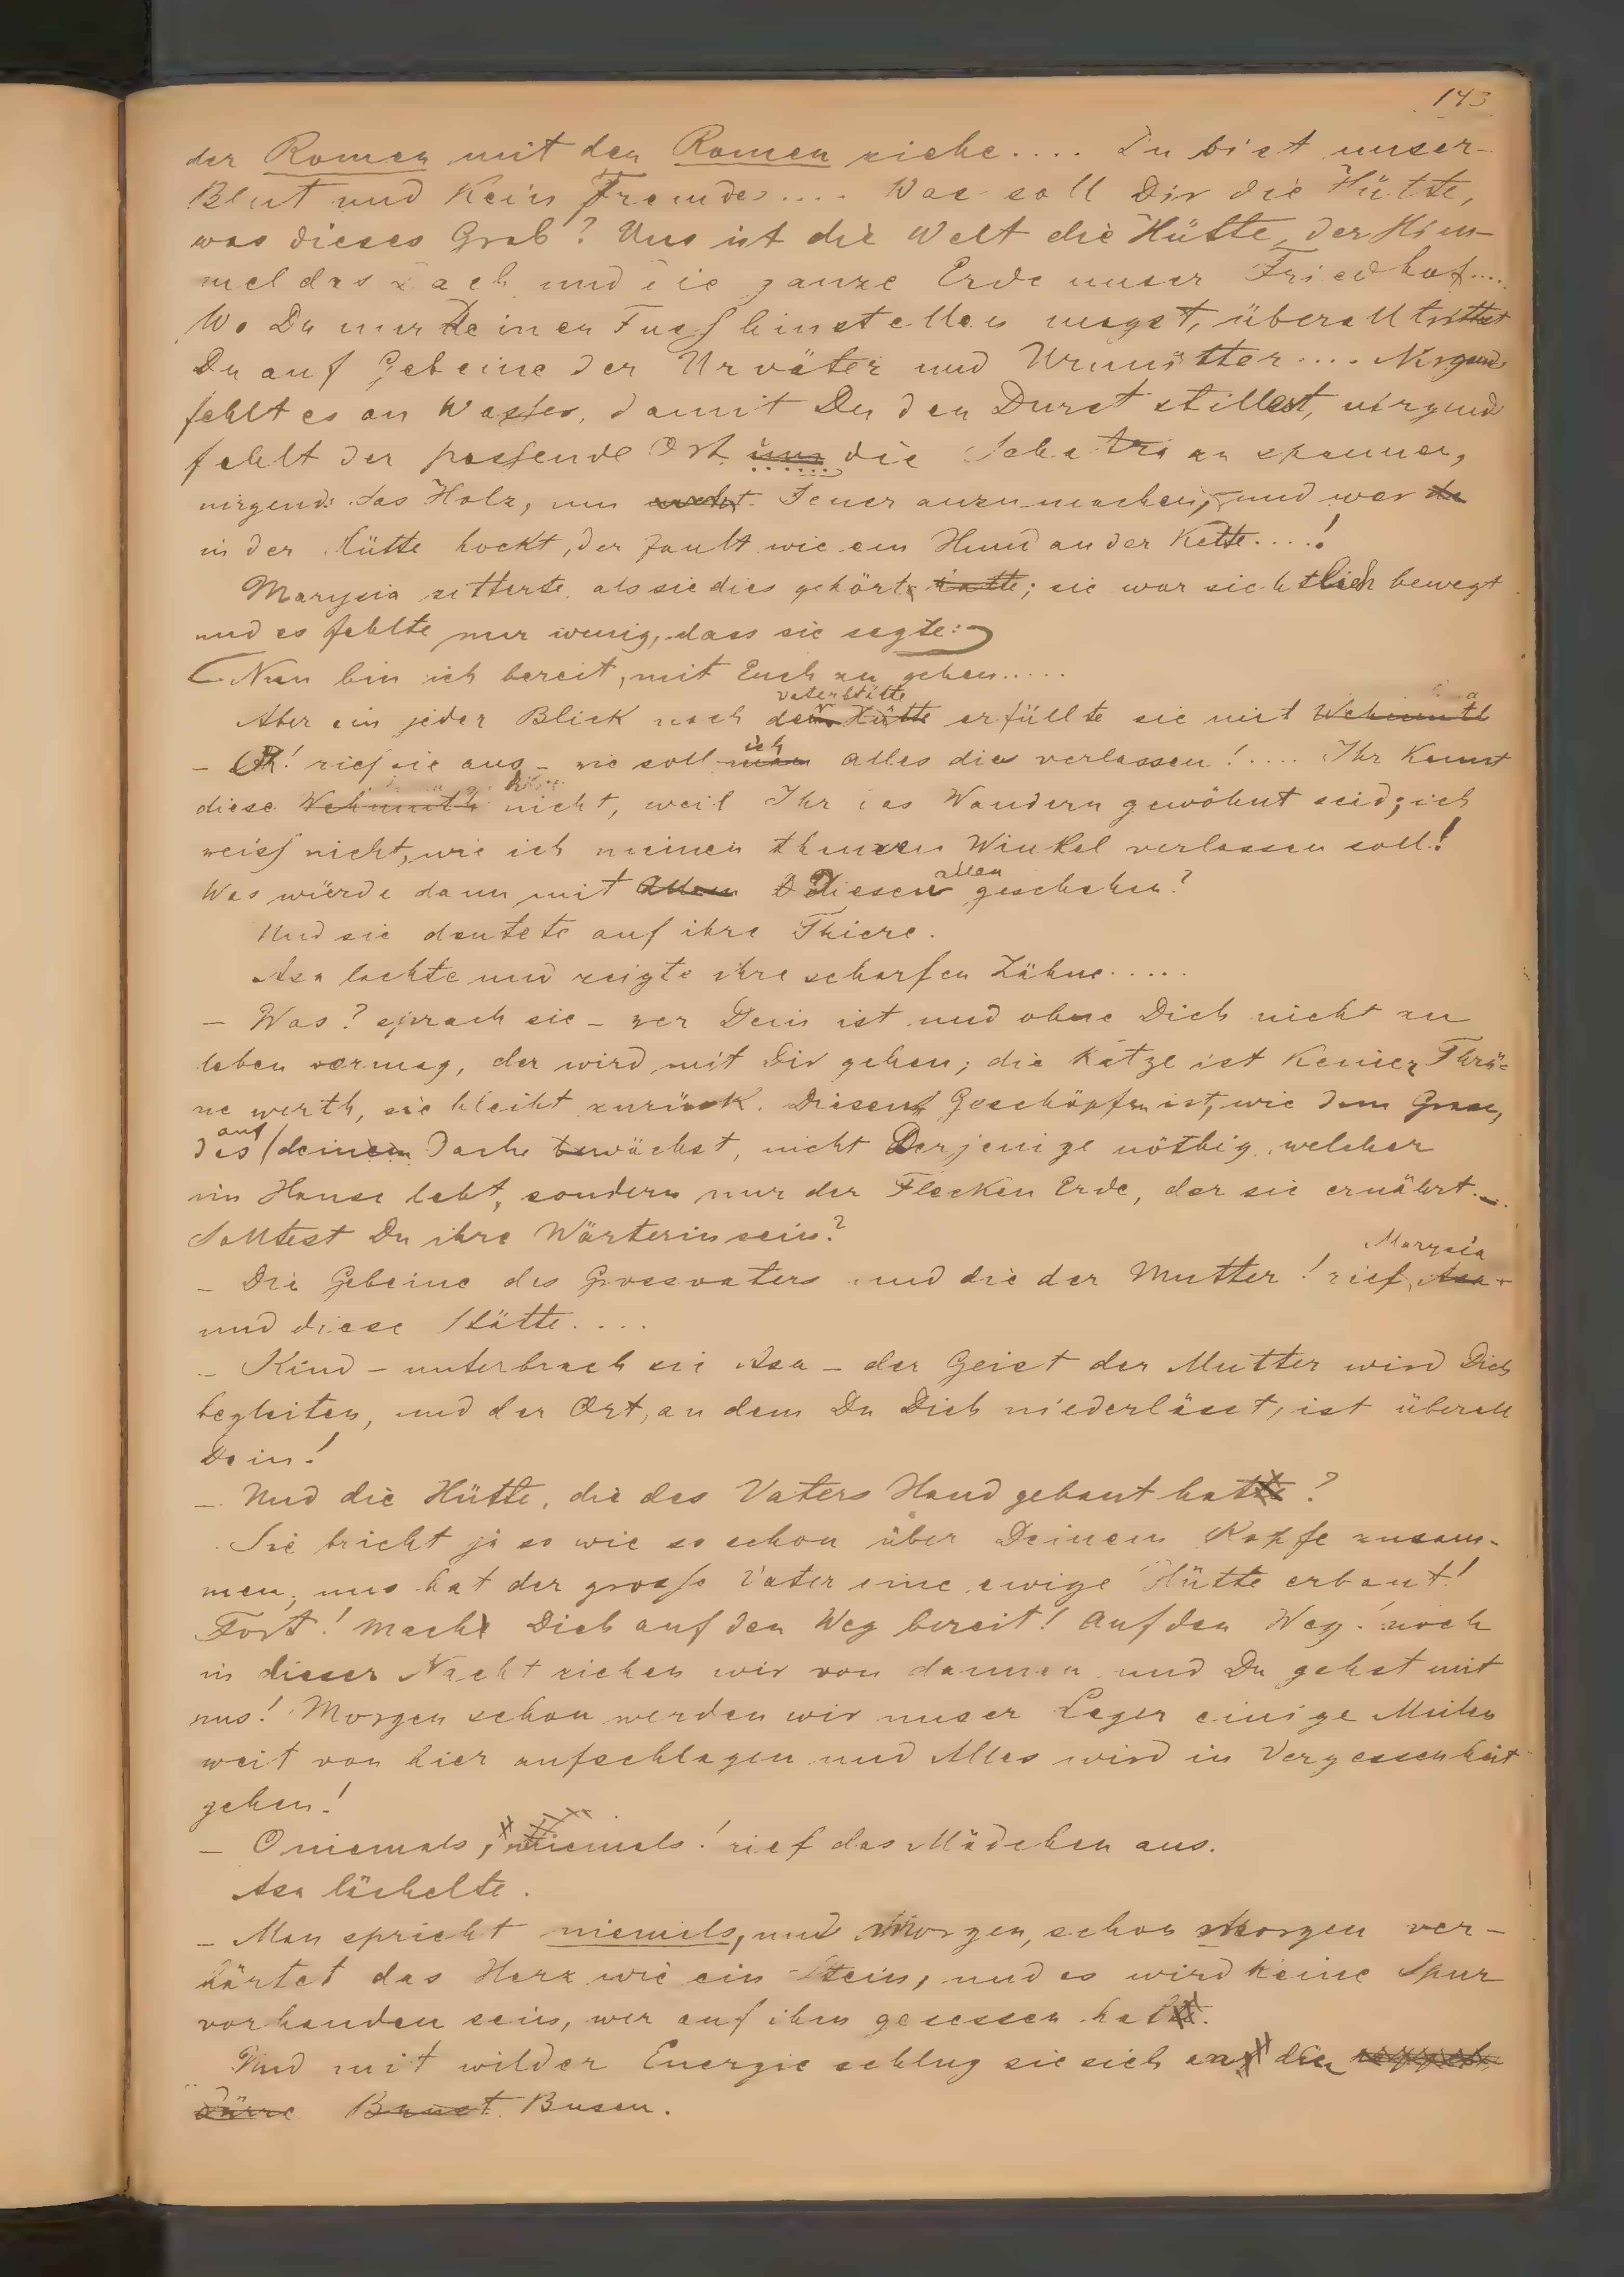 143
der Romen mit den Romen ziehe.... Du bist unser
Blut und kein Fremder.... Was soll Dir die Hütte,
was dieses Grab? Uns ist die Welt die Hütte, der Him-
mel das Dach und die ganze Erde unser Friedhof....
Wo Du nur Deinen Fuss hinstellen magst, überall trittst
Du auf Gebeine der Urväter und Urmütter.... Nirgends
fehlt es an Wasser, damit Du den Durst stillest, nirgends
fehlt der passende Ort um die Schatra zu spannen,
nirgends das Holz, um Feuer anzumachen, und wer da
in der Hütte hockt, der fault wie ein Hund an der Kette....!
Marysia zitterte, als sie dies gehört hatte; sie war sichtlich bewegt
und es fehlte nur wenig, dass sie sagte:
Nun bin ich bereit, mit Euch zu gehen.....
vaterstätte
Aber ein jeder Blick nach der Hütte erfüllte sie mit Wehmuth
ich
– Oh! rief sie aus – wie soll man alles dies verlassen!.... Ihr kennt
diese Wehmuth nicht, weil Ihr das Wandern gewöhnt seid; ich
weiss nicht, wie ich meinen theuren Winkel verlassen soll!
allen
Was würde dann mit Allen Diesen geschehen?
Und sie deutete auf ihre Thiere.
Aza lachte und zeigte ihre scharfen Zähne.....
– Was? sprach sie – wer Dein ist und ohne Dich nicht zu
leben vermag, der wird mit Dir gehen; die Katze ist keiner Thrä-
ne werth, sie bleibt zurück. Diesen Geschöpfen ist, wie dem Grase,
auf
das deinem Dache wächst, nicht Derjenige nöthig, welcher
im Hause lebt, sondern nur der Flecken Erde, der sie ernährt.
Solltest Du ihre Wärterin sein?
Marysia
– Die Gebeine des Grossvaters und die der Mutter! rief Aza –
und diese Stätte....
– Kind – unterbrach sie Aza – der Geist der Mutter wird Dich
begleiten, und der Ort, an dem Du Dich niederlässt, ist überall
Dein!
– Und die Hütte, die des Vaters Hand gebaut hat?
Sie bricht ja so wie so schon über Deinem Kopfe zusam-
men; uns hat der grosse Vater eine ewige Hütte erbaut!
Fort! Mache Dich auf den Weg bereit! Auf den Weg! noch
in dieser Nacht ziehen wir von dannen und Du gehst mit
uns! Morgen schon werden wir unser Lager einige Meilen
weit von hier aufschlagen und Alles wird in Vergessenheit
gehen!
– O niemals, niemals! rief das Mädchen aus.
Aza lächelte.
– Man spricht niemals, und Morgen, schon Morgen ver-
härtet das Herz wie ein Stein, und es wird keine Spur
vorhanden sein, wer auf ihm gesessen hat.
Und mit wilder Energie schlug sie sich an den
dürre Brust Busen.